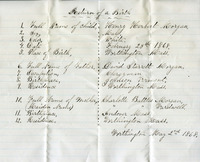 Return of a Birth
1. Full Name of Child, Henry Marshall Morgan,
2. Sex,
3. Color,
4. Date, February 29th 1868,
5. Place of Birth, Worthington, Mass.
6. Full Name of Father, David Starrett Morgan,
7. Occupation, Clergyman
8. Birthplace,
9. Residence, Worthington, Mass.
10. Full Name of Mother, Charlotte Morgan,
(Maiden Name)
11. Birthplace, Mass.
12. Residence, Worthington, Mass.
Worthington May 2nd 1868.